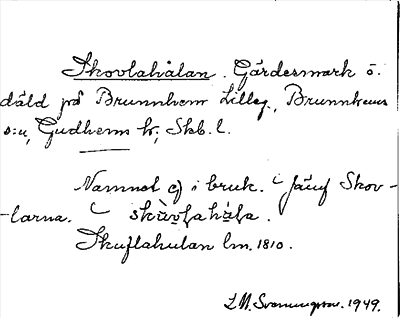 Skovlahålan. Gärdesmark o.
däld på Brunnhem Lilleg., Brunnhems
s:n, Gudhems hd, Skb. l.
Namnet ej i bruk. Jämf Skov-
-larna. skåvlahåla.
Skuflahulan lm. 1810.
1949.